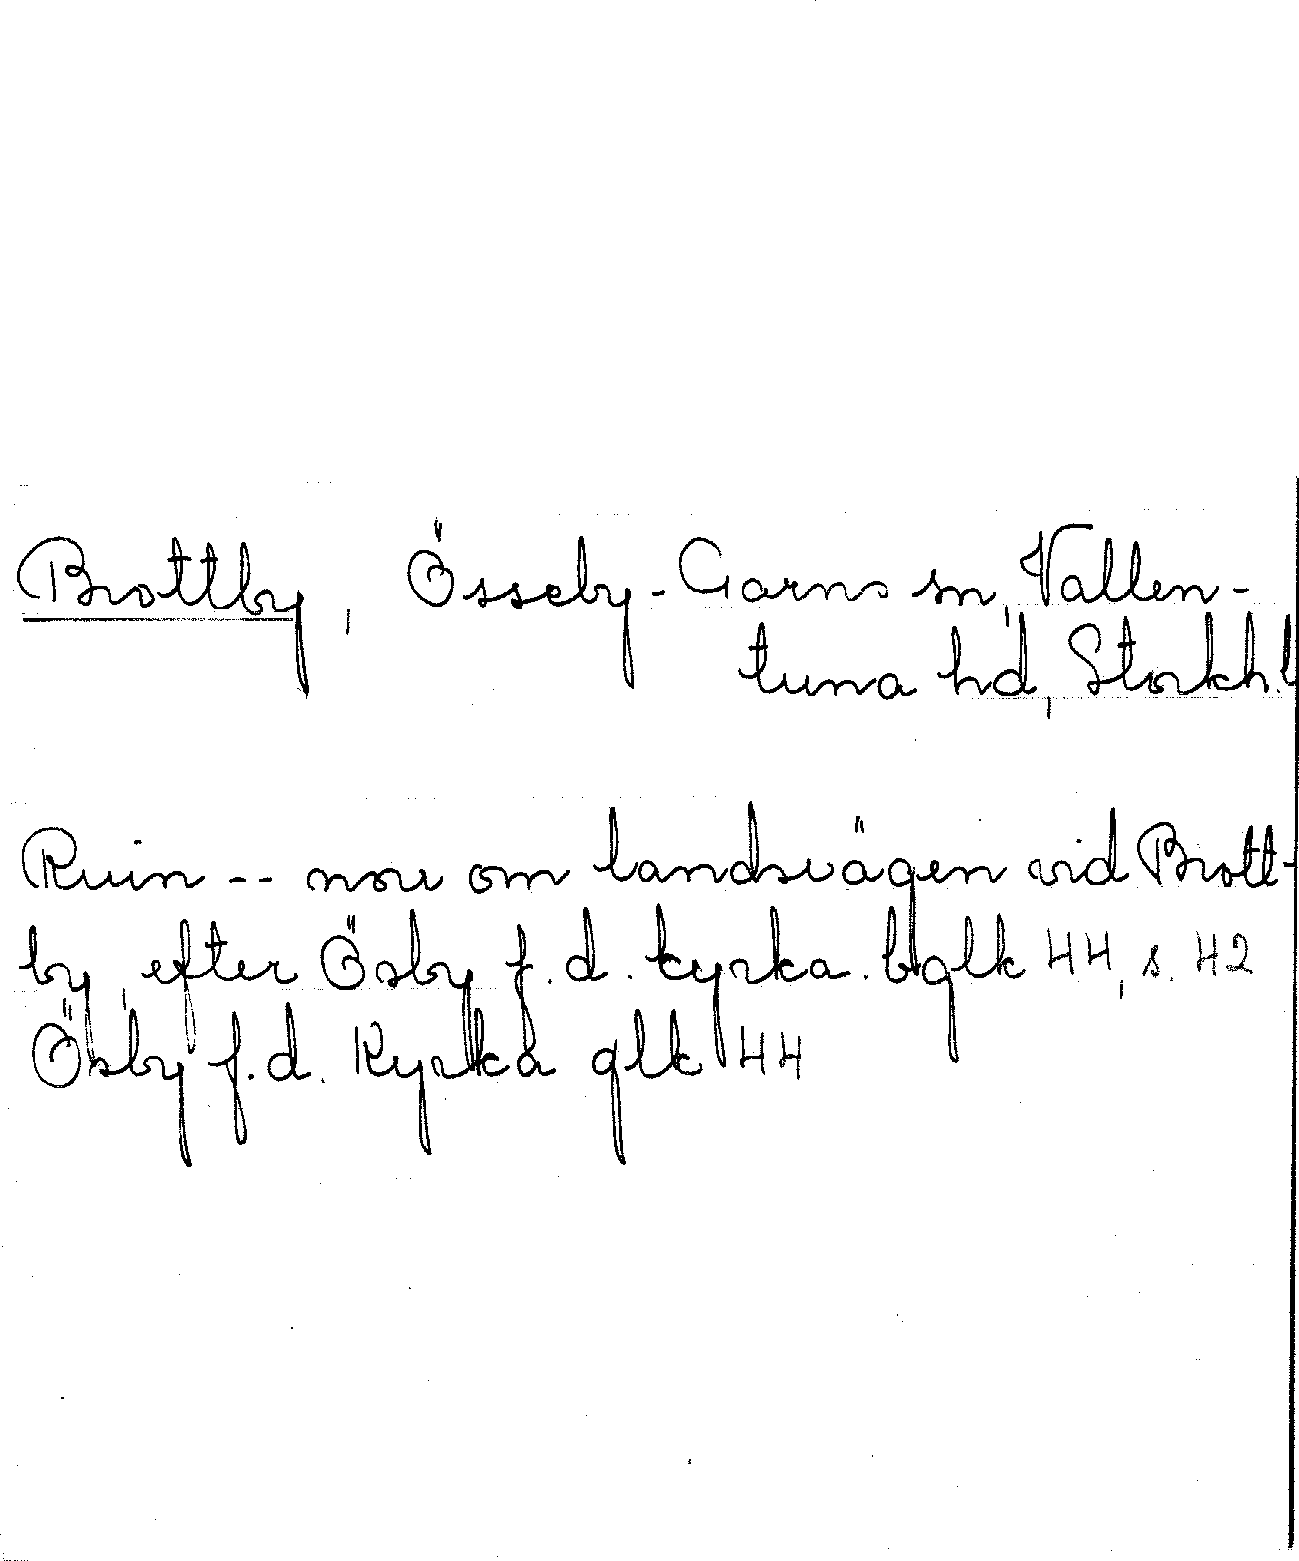 Brottby, Össeby-Garns sn, Vallen-
tuna hd, Stockh. l
Ruin -- norr om landsvägen vid Brott-
by, efter Ösby f.d. kyrka. bglk 44, s. 42
Ösby f.d. Kyrka glk 44